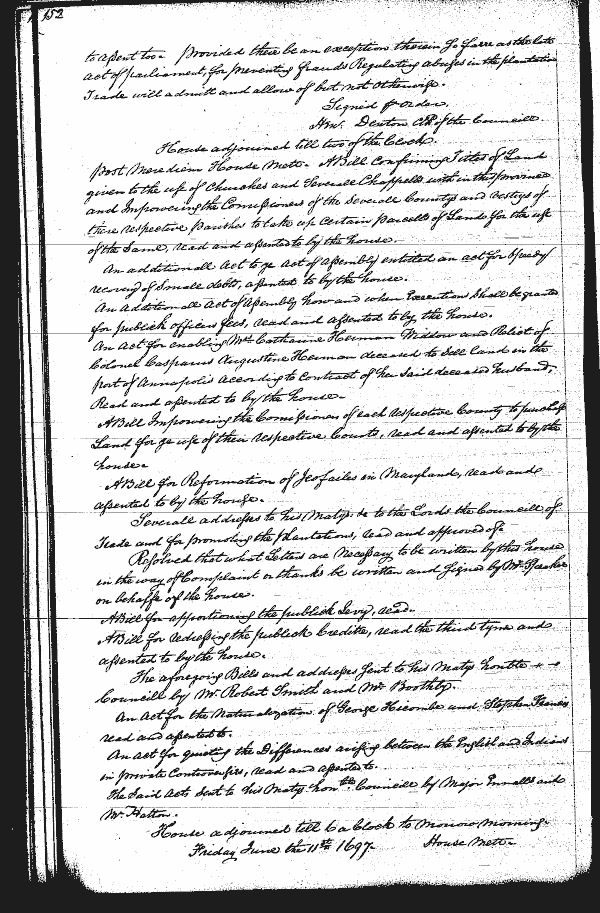 152
to assent too. Provided there be an exception therein so farre as the late
act of parliament, for preventing frauds Regulating abuses in the plantation
Trade will admitt and allow of but not otherwise.
Signed p order
Hen. Denton Clk of the Councill.
House adjourned till two of the Clock.
Post Merediem House Mett. A Bill Confirming Titles of Land
given to the use of Churches and Severall Chappells with in the province
and Impowering the Comissioners of the Severall Countys and vestrys of
there respective parishes to take up Certain parcells of Lands for the use
of the Same, read and assented to by the house.
An additionall Act to ye act of assembly entitled an act for Speedy
recovery of Small debts, assented to by the house.
An Additionall Act of Assembly how and when Executions Shall be granted
for publick officers fees, read and assented to by the house.
An Act for enabling Mrs Catharine Herman Widdow and Relict of
Colonel Casparus Augustine Herman deceased to Sell land in the
port of Annapolis according to Contract of her Said deceased husband,
Read and assented to by the house.
A Bill Impowering the Comissioners of each respective County to purchase
Land for ye use of their respective Courts, read and assented to by the
house.
A Bill for Reformation of Jeofailes in Maryland, read and
assented to by the house.
Severall addresses to his Matys. & to the Lords the Councill of
Trade and for promoting the plantations, read and approved of.
Resolved that what Letters are Necessary to be written by this house
in the way of Complaint or thanks be written and Signed by Mr Speaker
on behalfe of the house.
A Bill for apportioning the publick Levy, read.
A Bill for redressing the publick Creditt, read the third tyme and
assented to by the house.
The aforegoing Bills and addresses Sent to his Matys honble
Councill by Mr Robert Smith and Mr Boothby.
An Act for the Naturalization of George Hicombe and Stephen Francis
read and assented to.
An act for quieting the Differences arising between the English and Indians
in private Controversies, read and assented to.
The Said Acts Sent to his Matys honble Councill by Major Ennalls and
Mr Hatton.
House adjourned till 6 a Clock to Morrow Morning.
Friday June the 11th 1697. House Mett.